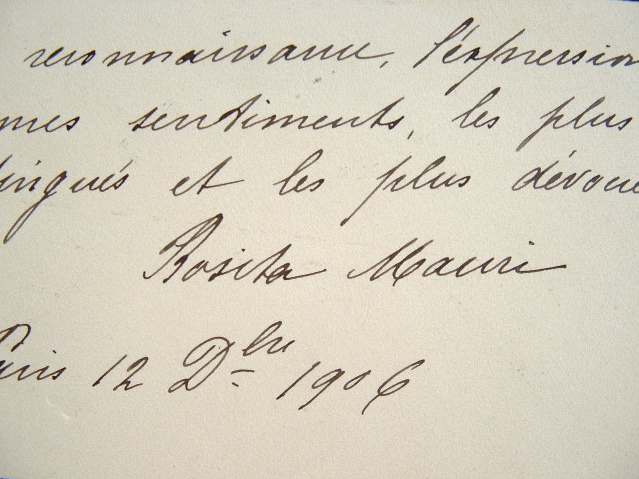 reconnaissance, l'expression
mes sentiments, les plus
tingués et les plus dévoué
Rosita Mauri
Paris 12 Dbre 1906